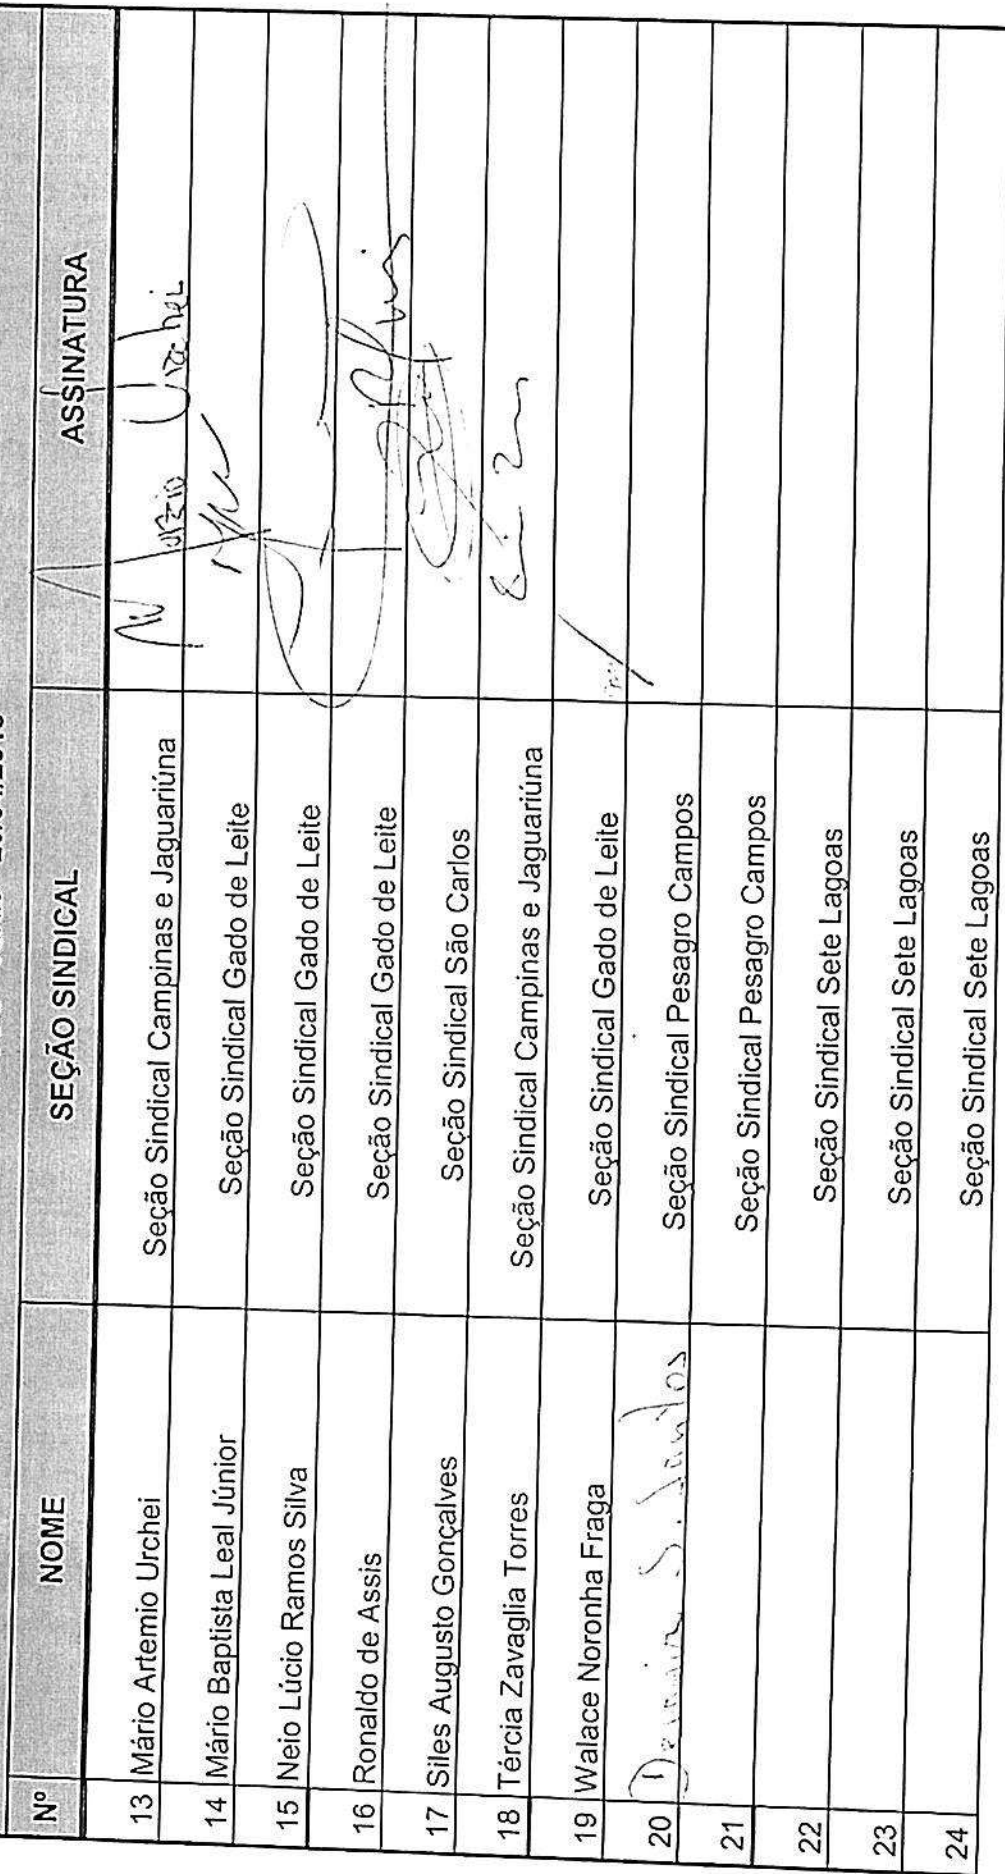 Nº NOME SEÇÃO SINDICAL ASSINATURA
13 Mário Artemio Urchei Seção Sindical Campinas e Jaguariúna Mário Urchei
14 Mário Baptista Leal Júnior Seção Sindical Gado de Leite
15 Neio Lúcio Ramos Silva Seção Sindical Gado de Leite
16 Ronaldo de Assis Seção Sindical Gado de Leite
17 Siles Augusto Gonçalves Seção Sindical São Carlos
18 Tércia Zavaglia Torres Seção Sindical Campinas e Jaguariúna
19 Walace Noronha Fraga Seção Sindical Gado de Leite
20 S. Santos Seção Sindical Pesagro Campos
21 Seção Sindical Pesagro Campos
22 Seção Sindical Sete Lagoas
23 Seção Sindical Sete Lagoas
24 Seção Sindical Sete Lagoas